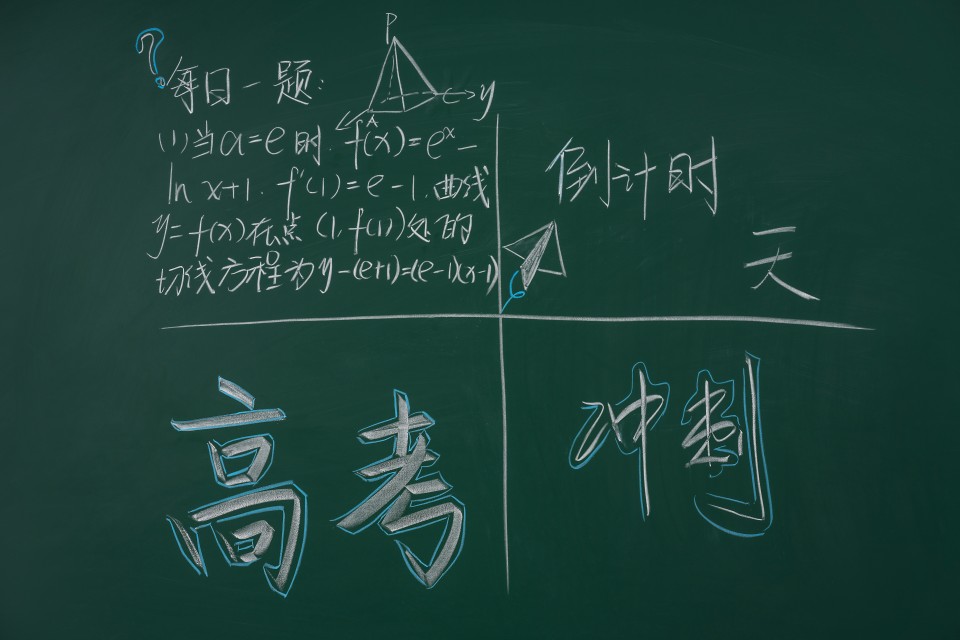 ?
每日一题:
P
A
y
(1)当a=e时. f(x)=eˣ-
ln x+1. f'(1)=e-1. 曲线
y=f(x)在点 (1.f(1))处的
切线方程为y-(e+1)=(e-1)(x-1)
倒计时
天
高考
冲刺